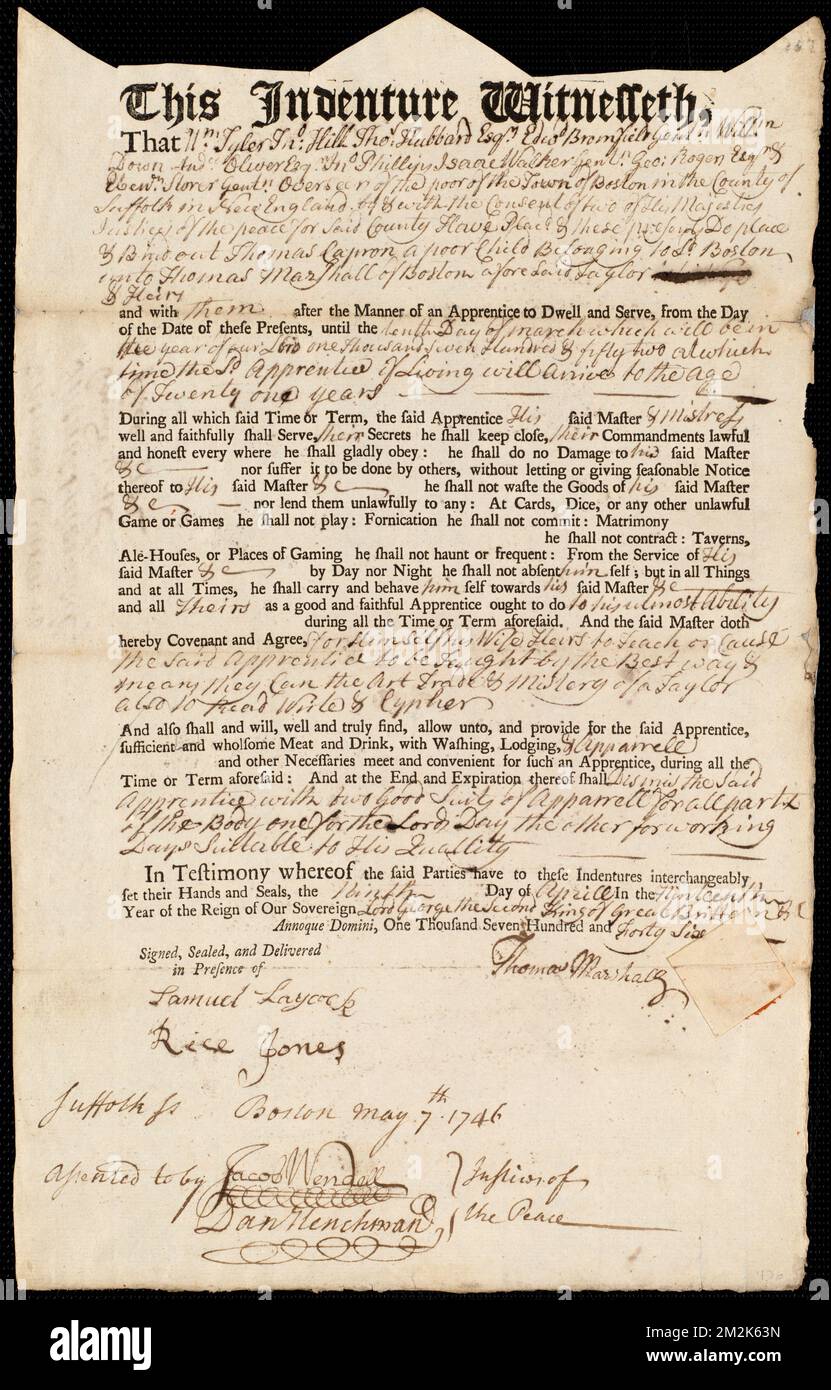 This Indenture Witnesseth,
That Wm Tyler Jno. Hill Tho. Hubbard Esqrs. Edwd Bromfield Gent. Willm
Down Andw. Oliver Esqr. Jno Phillips Isaac Walker Gent. Geo: Rogers Esqr. &
Ebenr. Storer Gent. Overseers of the poor of the Town of Boston in the County of
Suffolk in New England by & with the Consent of two of His Majesties
Justices of the peace for said County Have Placed & these presents Do place
& Bind out Thomas Capron a poor Child Belonging to Sd. Boston
unto Thomas Marshall of Boston aforesaid Taylor
& Heirs
and with them after the Manner of an Apprentice to Dwell and Serve, from the Day
of the Date of these Presents, until the tenth Day of march which will be in
the year of our Lord one thousand seven Hundred & fifty two at which
time the Sd Apprentice if Living will arrive to the age
of Twenty one years
During all which said Time or Term, the said Apprentice His said Master & mistress
well and faithfully shall Serve, their Secrets he shall keep close, their Commandments lawful
and honest every where he shall gladly obey: he shall do no Damage to his said Master
&c nor suffer it to be done by others, without letting or giving seasonable Notice
thereof to His said Master &c he shall not waste the Goods of his said Master
&c nor lend them unlawfully to any: At Cards, Dice, or any other unlawful
Game or Games he shall not play: Fornication he shall not commit: Matrimony
he shall not contract: Taverns,
Ale-Houses, or Places of Gaming he shall not haunt or frequent: From the Service of His
said Master &c by Day nor Night he shall not absent him self; but in all Things
and at all Times, he shall carry and behave him self towards his said Master &c
and all Theirs as a good and faithful Apprentice ought to do to his utmost Ability
during all the Time or Term aforesaid. And the said Master doth
hereby Covenant and Agree, for Himself his Wife & Heirs to Teach or Cause
the said Apprentice to be Taught by the Best way &
means they Can the Art Trade & Mistery of a Taylor
also to Read Write & Cypher
And also shall and will, well and truly find, allow unto, and provide for the said Apprentice,
sufficient and wholsome Meat and Drink, with Washing, Lodging, & Apparrell
and other Necessaries meet and convenient for such an Apprentice, during all the
Time or Term aforesaid: And at the End and Expiration thereof shall Dismis the said
Apprentice with two Good Suits of Apparrell for all parts
of the Body one for the Lords Day the other for working
Days Suitable to His Quallity
In Testimony whereof the said Parties have to these Indentures interchangeably
set their Hands and Seals, the Ninth Day of Aprill In the Nineteenth
Year of the Reign of Our Sovereign Lord George the Second King of Great Brittain &c
Annoque Domini, One Thousand Seven Hundred and Forty Six
Signed, Sealed, and Delivered
in Presence of
Thomas Marshall
Samuel Laycock
Rice Jones
Suffolk ss Boston may 7th. 1746
Assented to by Jacob Wendell Justices of
Dan Henchman the Peace
alamy
Image ID: 2M2K63N
www.alamy.com